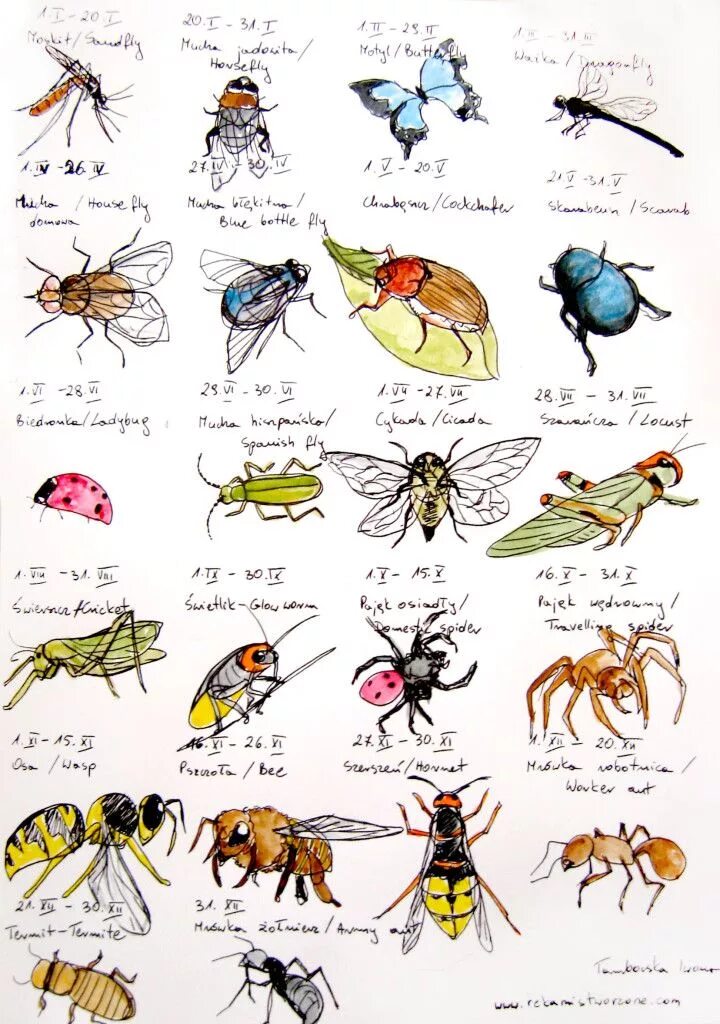 1.I - 20.I
Moskit/Sandfly
20.I - 31.I
Mucha jadowita/
Horsefly
1.II - 29.II
Motyl/Butterfly
1.III - 31.III
Ważka/Dragonfly
1.IV - 26.IV
Mucha /House fly
domowa
27.IV - 30.IV
Mucha błękitna/
Blue bottle fly
1.V - 20.V
Chrabąszcz/Cockchafer
21.V - 31.V
Skarabeusz/Scarab
1.VI - 28.VI
Biedronka/Ladybug
29.VI - 30.VI
Mucha hiszpańska/
Spanish fly
1.VII - 27.VII
Cykada/Cicada
28.VII - 31.VII
Szarańcza/Locust
1.VIII - 31.VIII
Świerszcz/Cricket
1.IX - 30.IX
Świetlik-Glow worm
1.X - 15.X
Pająk osiadły/
Domestic spider
16.X - 31.X
Pająk wędrowny/
Travelling spider
1.XI - 15.XI
Osa/Wasp
16.XI - 26.XI
Pszczoła/Bee
27.XI - 30.XI
Szerszeń/Hornet
1.XII - 20.XII
Mrówka robotnica/
Worker ant
21.XII - 30.XII
Termit-Termite
31.XII
Mrówka żołnierz/Army ant
Tambowska Iwona
www.rekamistworzone.com